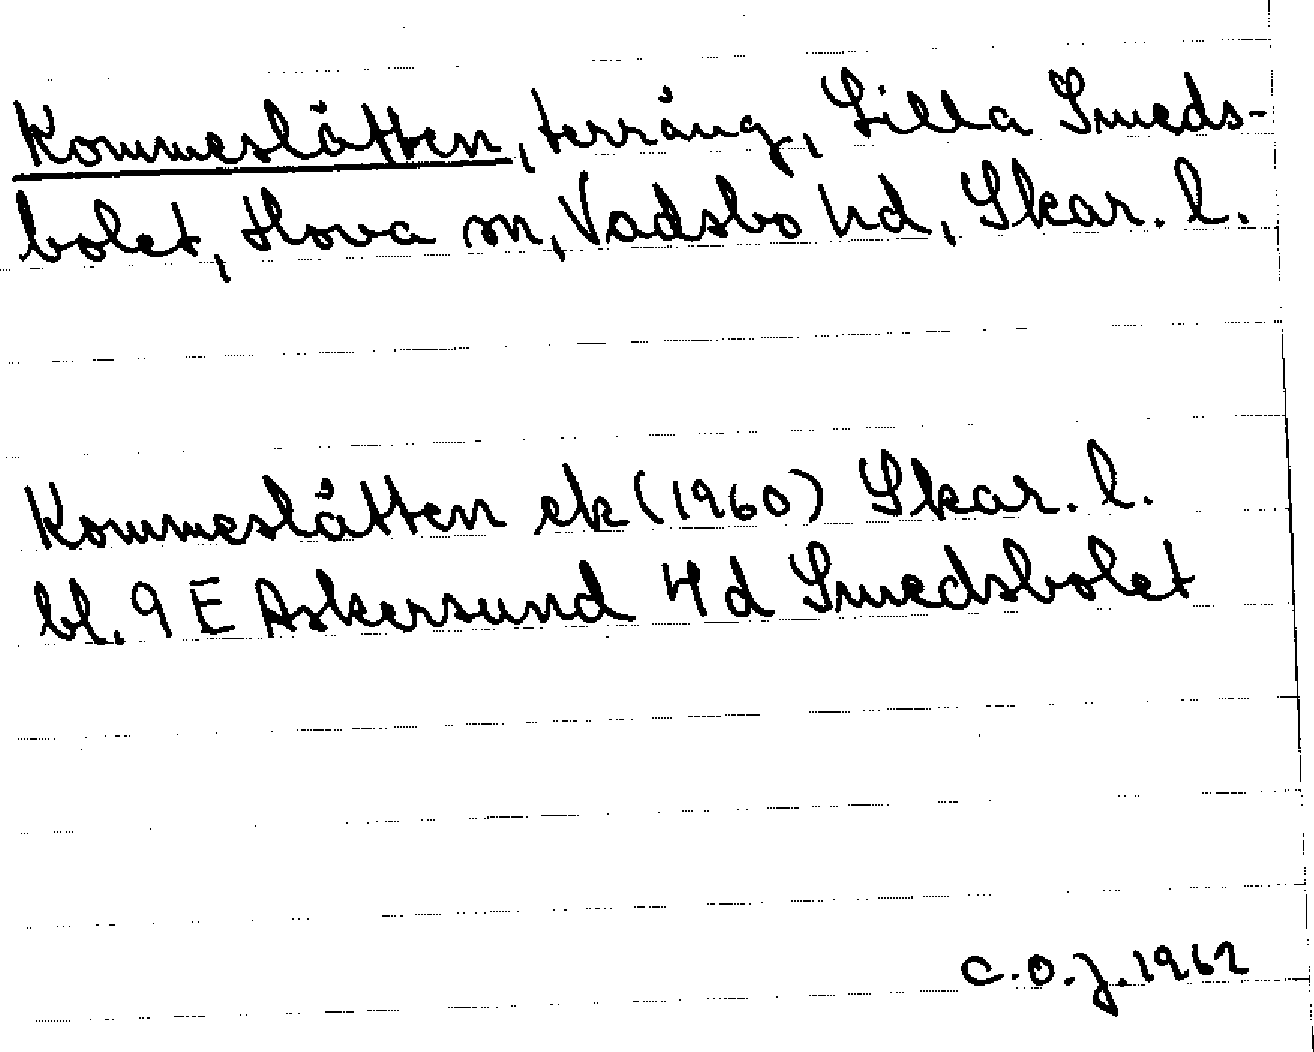 Kommeslåtten, terräng, Lilla Smeds-
bolet, Hova sn, Vadsbo hd, Skar. l.
Kommeslåtten ek (1960) Skar. l.
bl. 9 E Askersund 4d Smedsbolet
C.O.J. 1962